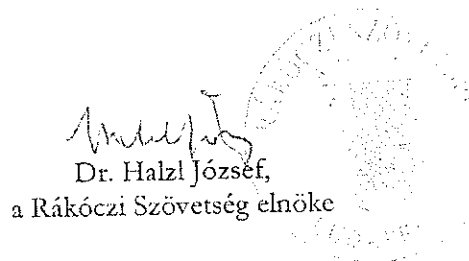 Dr. Halzl József,
a Rákóczi Szövetség elnöke